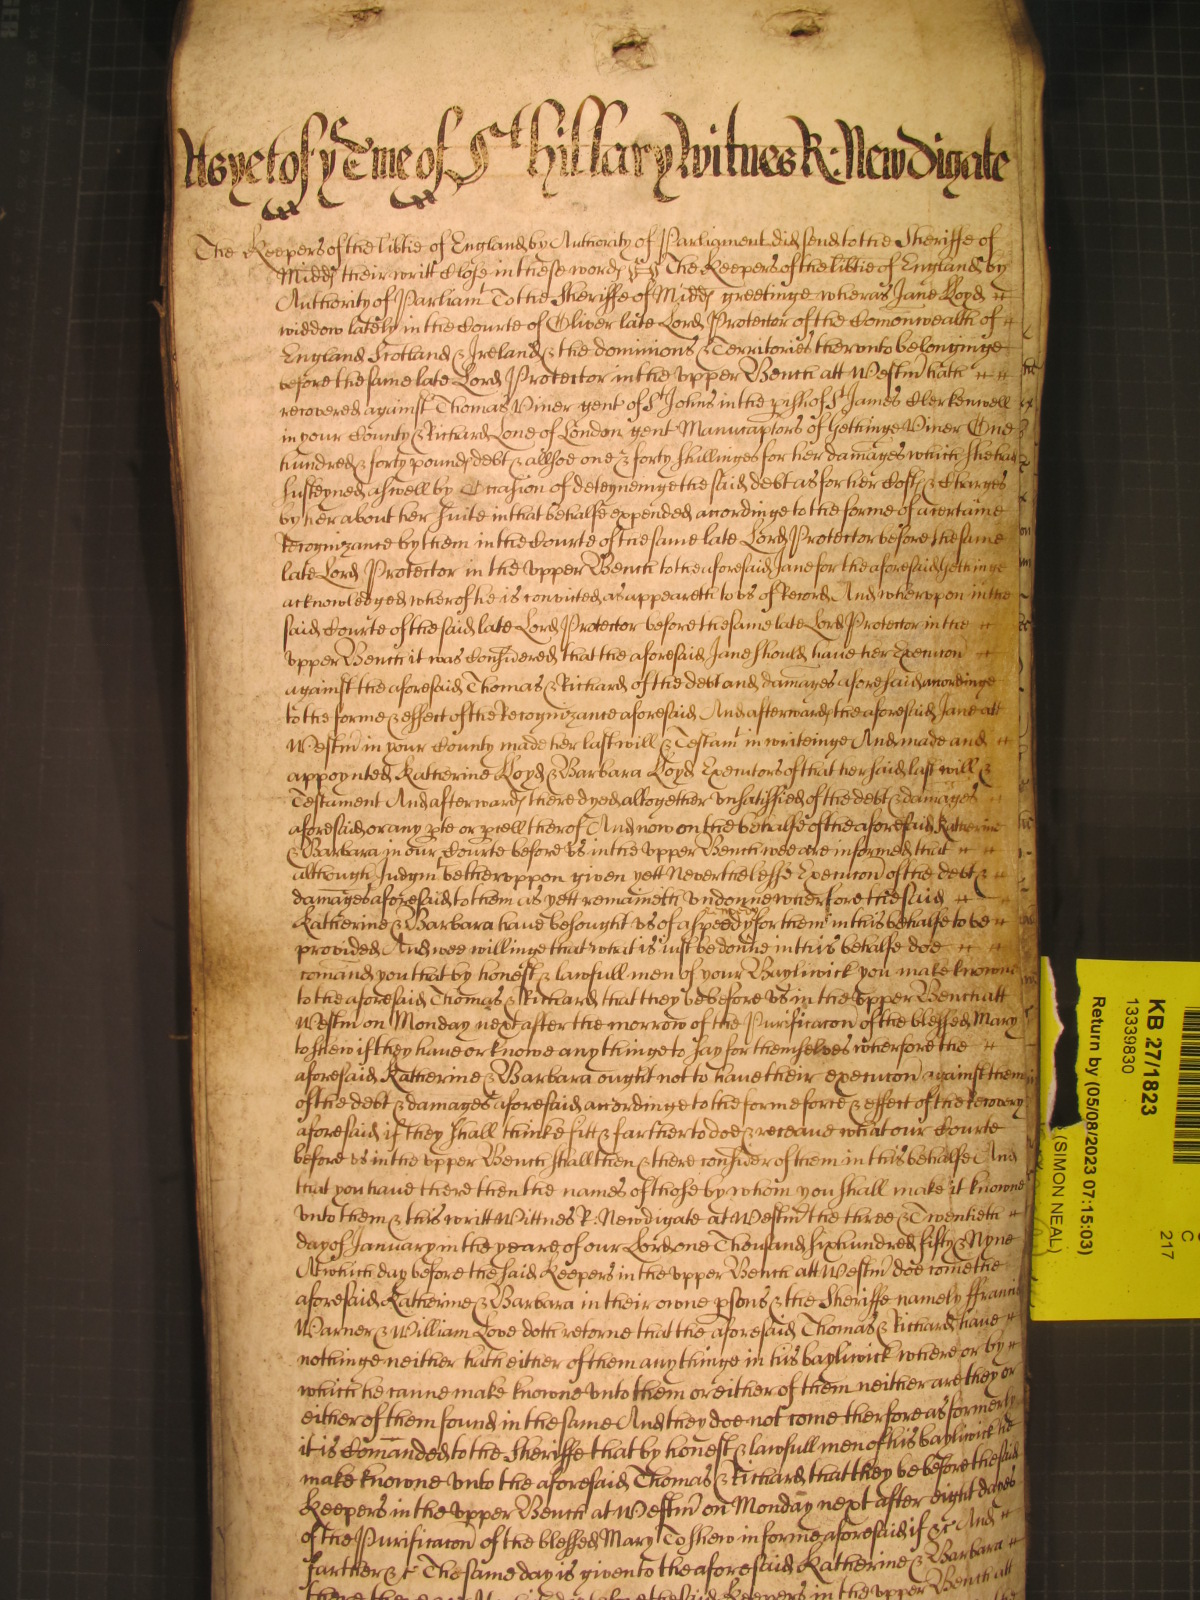 As yet of ye Tme of St Hillary Witnes R: Newdigate
The Keepers of the libtie of England by Authority of Parliament did send to the Sheriffe of
Midds their writt Close in these words The Keepers of the libtie of England by
Authority of Parliamt To the Sheriffe of Midds greetinge wheras Jane Lloyd
widdow lately in the Courte of Oliver late Lord Protector of the Comonwealth of
England Scotland & Ireland & the dominions & Territories therunto belonginge
before the same late Lord Protector in the upper Bench att Westm hath
recovered against Thomas Viner gent of St Johns in the pish of St James Clerkenwell
in your County & Richard Lone of London gent Manucaptors of Viner One
hundred & forty pounds debt & allsoe one & forty shillinges for her damages which she had
susteyned aswell by Occasion of deteyneinge the said debt as for her Costs & Charges
by her about her Suite in that behalfe expended accordinge to the forme of a certaine
Recognizance by them in the Courte of the same late Lord Protector before the same
late Lord Protector in the upper Bench to the aforesaid Jane for the aforesaid
acknowledged wherof he is convicted as appeareth to us of Record And wherupon in the
said Courte of the said late Lord Protector before the same late Lord Protector in the
upper Bench it was Considered that the aforesaid Jane should have her Execucon
against the aforesaid Thomas & Richard of the debt and damages aforesaid accordinge
to the forme & effect of the Recognizance aforesaid And afterwards the aforesaid Jane att
Westm in your County made her last will & Testamt in writeinge And made and
appoynted Katherine Lloyd & Barbara Lloyd Executors of that her said last will &
Testament And afterwards there dyed altogether unsatisfied of the debt & damages
aforesaid or any pte or pcell therof And now on the behalfe of the aforesaid Katherine
& Barbara in our Courte before Us in the upper Bench wee are informed that
although Judgmt be theruppon given yett Neverthelesse Execucon of the debt &
damages aforesaid to them as yett remaineth undonne wherfore the said
Katherine & Barbara have besought us of a speedy for them in this behalfe to be
provided And wee willinge that what is just be donne in this behalfe doe
comand you that by honest & lawfull men of your Bayliwick you make knowne
to the aforesaid Thomas & Richard that they be before us in the upper Bench att
Westm on Monday next after the morrow of the Purificacon of the blessed Mary
to shew if they have or knowe any thinge to say for themselves wherfore the
aforesaid Katherine & Barbara ought not to have their execucon against them
of the debt & damages aforesaid accordinge to the forme force & effect of the Recovery
aforesaid if they shall thinke fitt & farther to doe & receave what our Courte
before us in the upper Bench shall then & there consider of them in this behalfe And
that you have there then the names of those by whom you shall make it knowne
unto them & this writt Wittnes R: Newdigate at Westm the three & Twentieth
day of January in the yeare of our Lord one Thousand six hundred fifty & Nyne
At which day before the said Keepers in the upper Bench att Westm doe come the
aforesaid Katherine & Barbara in their owne psons & the Sheriffe namely ffrancis
Warner & William Love doth retorne that the aforesaid Thomas & Richard have
nothinge neither hath either of them any thinge in his bayliwick where or by
which he canne make knowne unto them or either of them neither are they or
either of them found in the same And they doe not come therfore as formerly
it is Comanded to the Sheriffe that by honest & lawfull men of his bayliwick he
make knowne unto the aforesaid Thomas & Richard that they be before the said
Keepers in the upper Bench at Westm on Monday next after eight dayes
of the Purificacon of the blessed Mary To shew in forme aforesaid if &c And
farther &c The same day is given to the aforesaid Katherine & Barbara
Keepers in the upper Bench att
KB 27/1823
13339830
Return by (05/08/2023 07:15:03)
(SIMON NEAL)
C
217